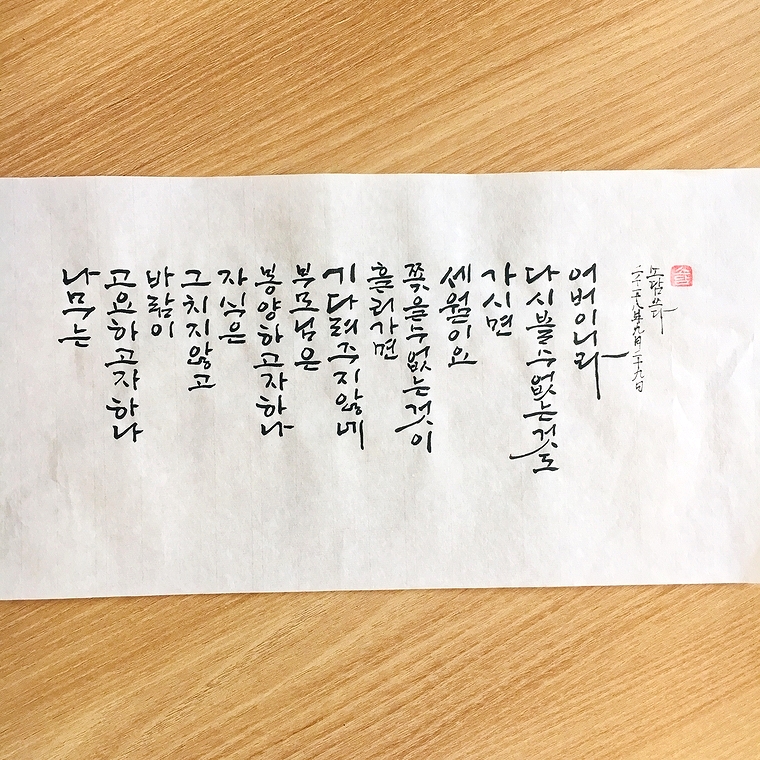 나무는
고요하고자 하나
바람이
그치지않고
자식은
봉양하고자 하나
부모님은
기다려주지않네
흘러가면
쫒을수없는것이
세월이요
가시면
다시볼수없는것도
어버이니라
쓰다
八年九月二十九日